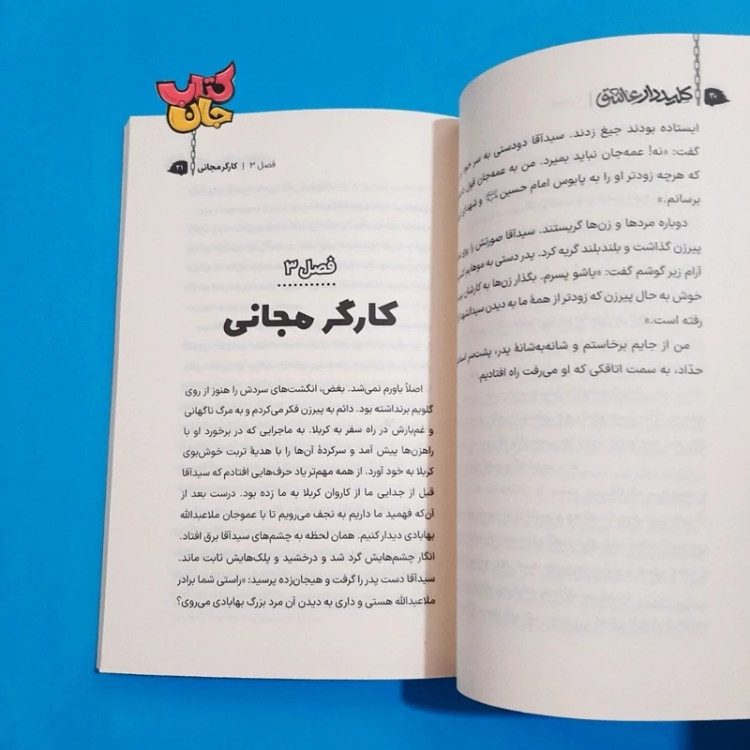 کتاب
جان
۳۰ | کلیددار عاشق
ایستاده بودند جیغ زدند. سیدآقا دودستی به سر خود
گفت: «نه! عمه‌جان نباید بمیرد. من به عمه‌جان قول
که هرچه زودتر او را به پابوس امام حسین و شهدای
برسانم.»
دوباره مردها و زن‌ها گریستند. سیدآقا صورتش را روی
پیرزن گذاشت و بلندبلند گریه کرد. پدر دستی به موهایم
آرام زیر گوشم گفت: «پاشو پسرم. بگذار زن‌ها به کارشان
خوش به حال پیرزن که زودتر از همهٔ ما به دیدن سیدالشهدا
رفته است.»
من از جایم برخاستم و شانه‌به‌شانهٔ پدر، پشت‌سر
حدّاد، به سمت اتاقکی که او می‌رفت راه افتادیم.
فصل ۳ | کارگر مجانی ۳۱
فصل ۳
کارگر مجانی
اصلاً باورم نمی‌شد. بغض، انگشت‌های سردش را هنوز از روی
گلویم برنداشته بود. دائم به پیرزن فکر می‌کردم و به مرگ ناگهانی
و غم‌بارش در راه سفر به کربلا. به ماجرایی که در برخورد او با
راهزن‌ها پیش آمد و سرکردهٔ آن‌ها را با هدیهٔ تربت خوش‌بوی
کربلا به خود آورد. از همه مهم‌تر یاد حرف‌هایی افتادم که سیدآقا
قبل از جدایی ما از کاروان کربلا به ما زده بود. درست بعد از
آن‌که فهمید ما داریم به نجف می‌رویم تا با عموجان ملاعبدالله
بهابادی دیدار کنیم. همان لحظه به چشم‌های سیدآقا برق افتاد.
انگار چشم‌هایش گرد شد و درخشید و پلک‌هایش ثابت ماند.
سیدآقا دست پدر را گرفت و هیجان‌زده پرسید: «راستی شما برادر
ملاعبدالله هستی و داری به دیدن آن مرد بزرگ بهابادی می‌روی؟